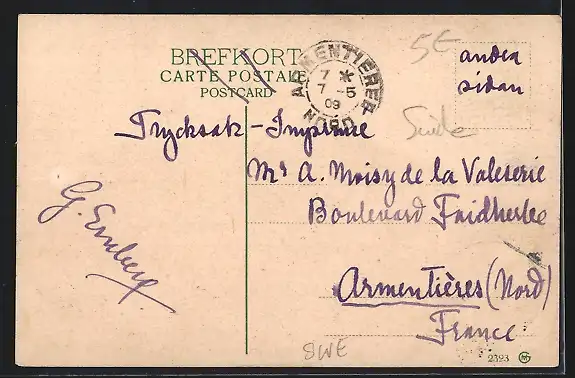 BREFKORT
CARTE POSTALE
POSTCARD
ARMENTIERES
7 *
7 -5
09
NORD
5E
andra
sidan
Trycksak - Imprimé
Suède
Mr A. Moisy de la Valeserie
Boulevard Faidherbe
G. Ernberg
Armentières (Nord)
France
SWE
2393